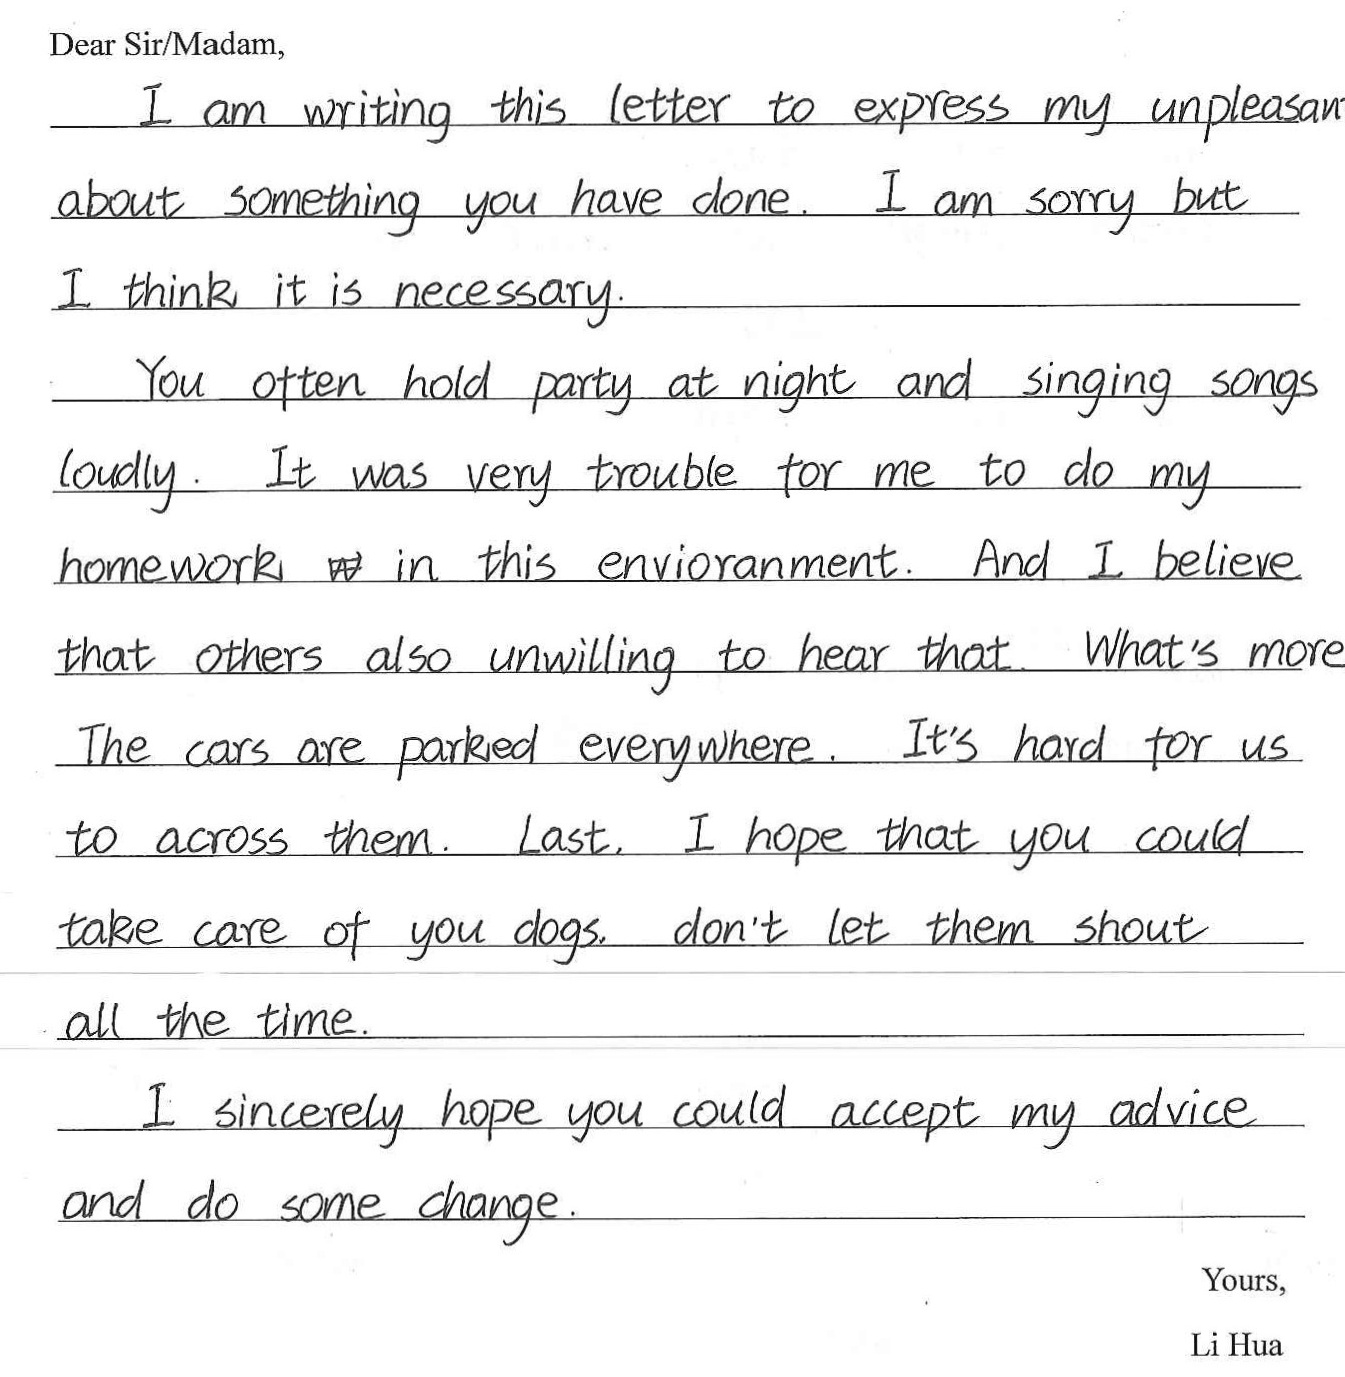 Dear Sir/Madam,
I am writing this letter to express my unpleasant
about something you have done. I am sorry but
I think it is necessary.
You often hold party at night and singing songs
loudly. It was very trouble for me to do my
homework in this envioranment. And I believe
that others also unwilling to hear that. What's more
The cars are parked everywhere. It's hard for us
to across them. Last, I hope that you could
take care of you dogs. don't let them shout
all the time.
I sincerely hope you could accept my advice
and do some change.
Yours,
Li Hua